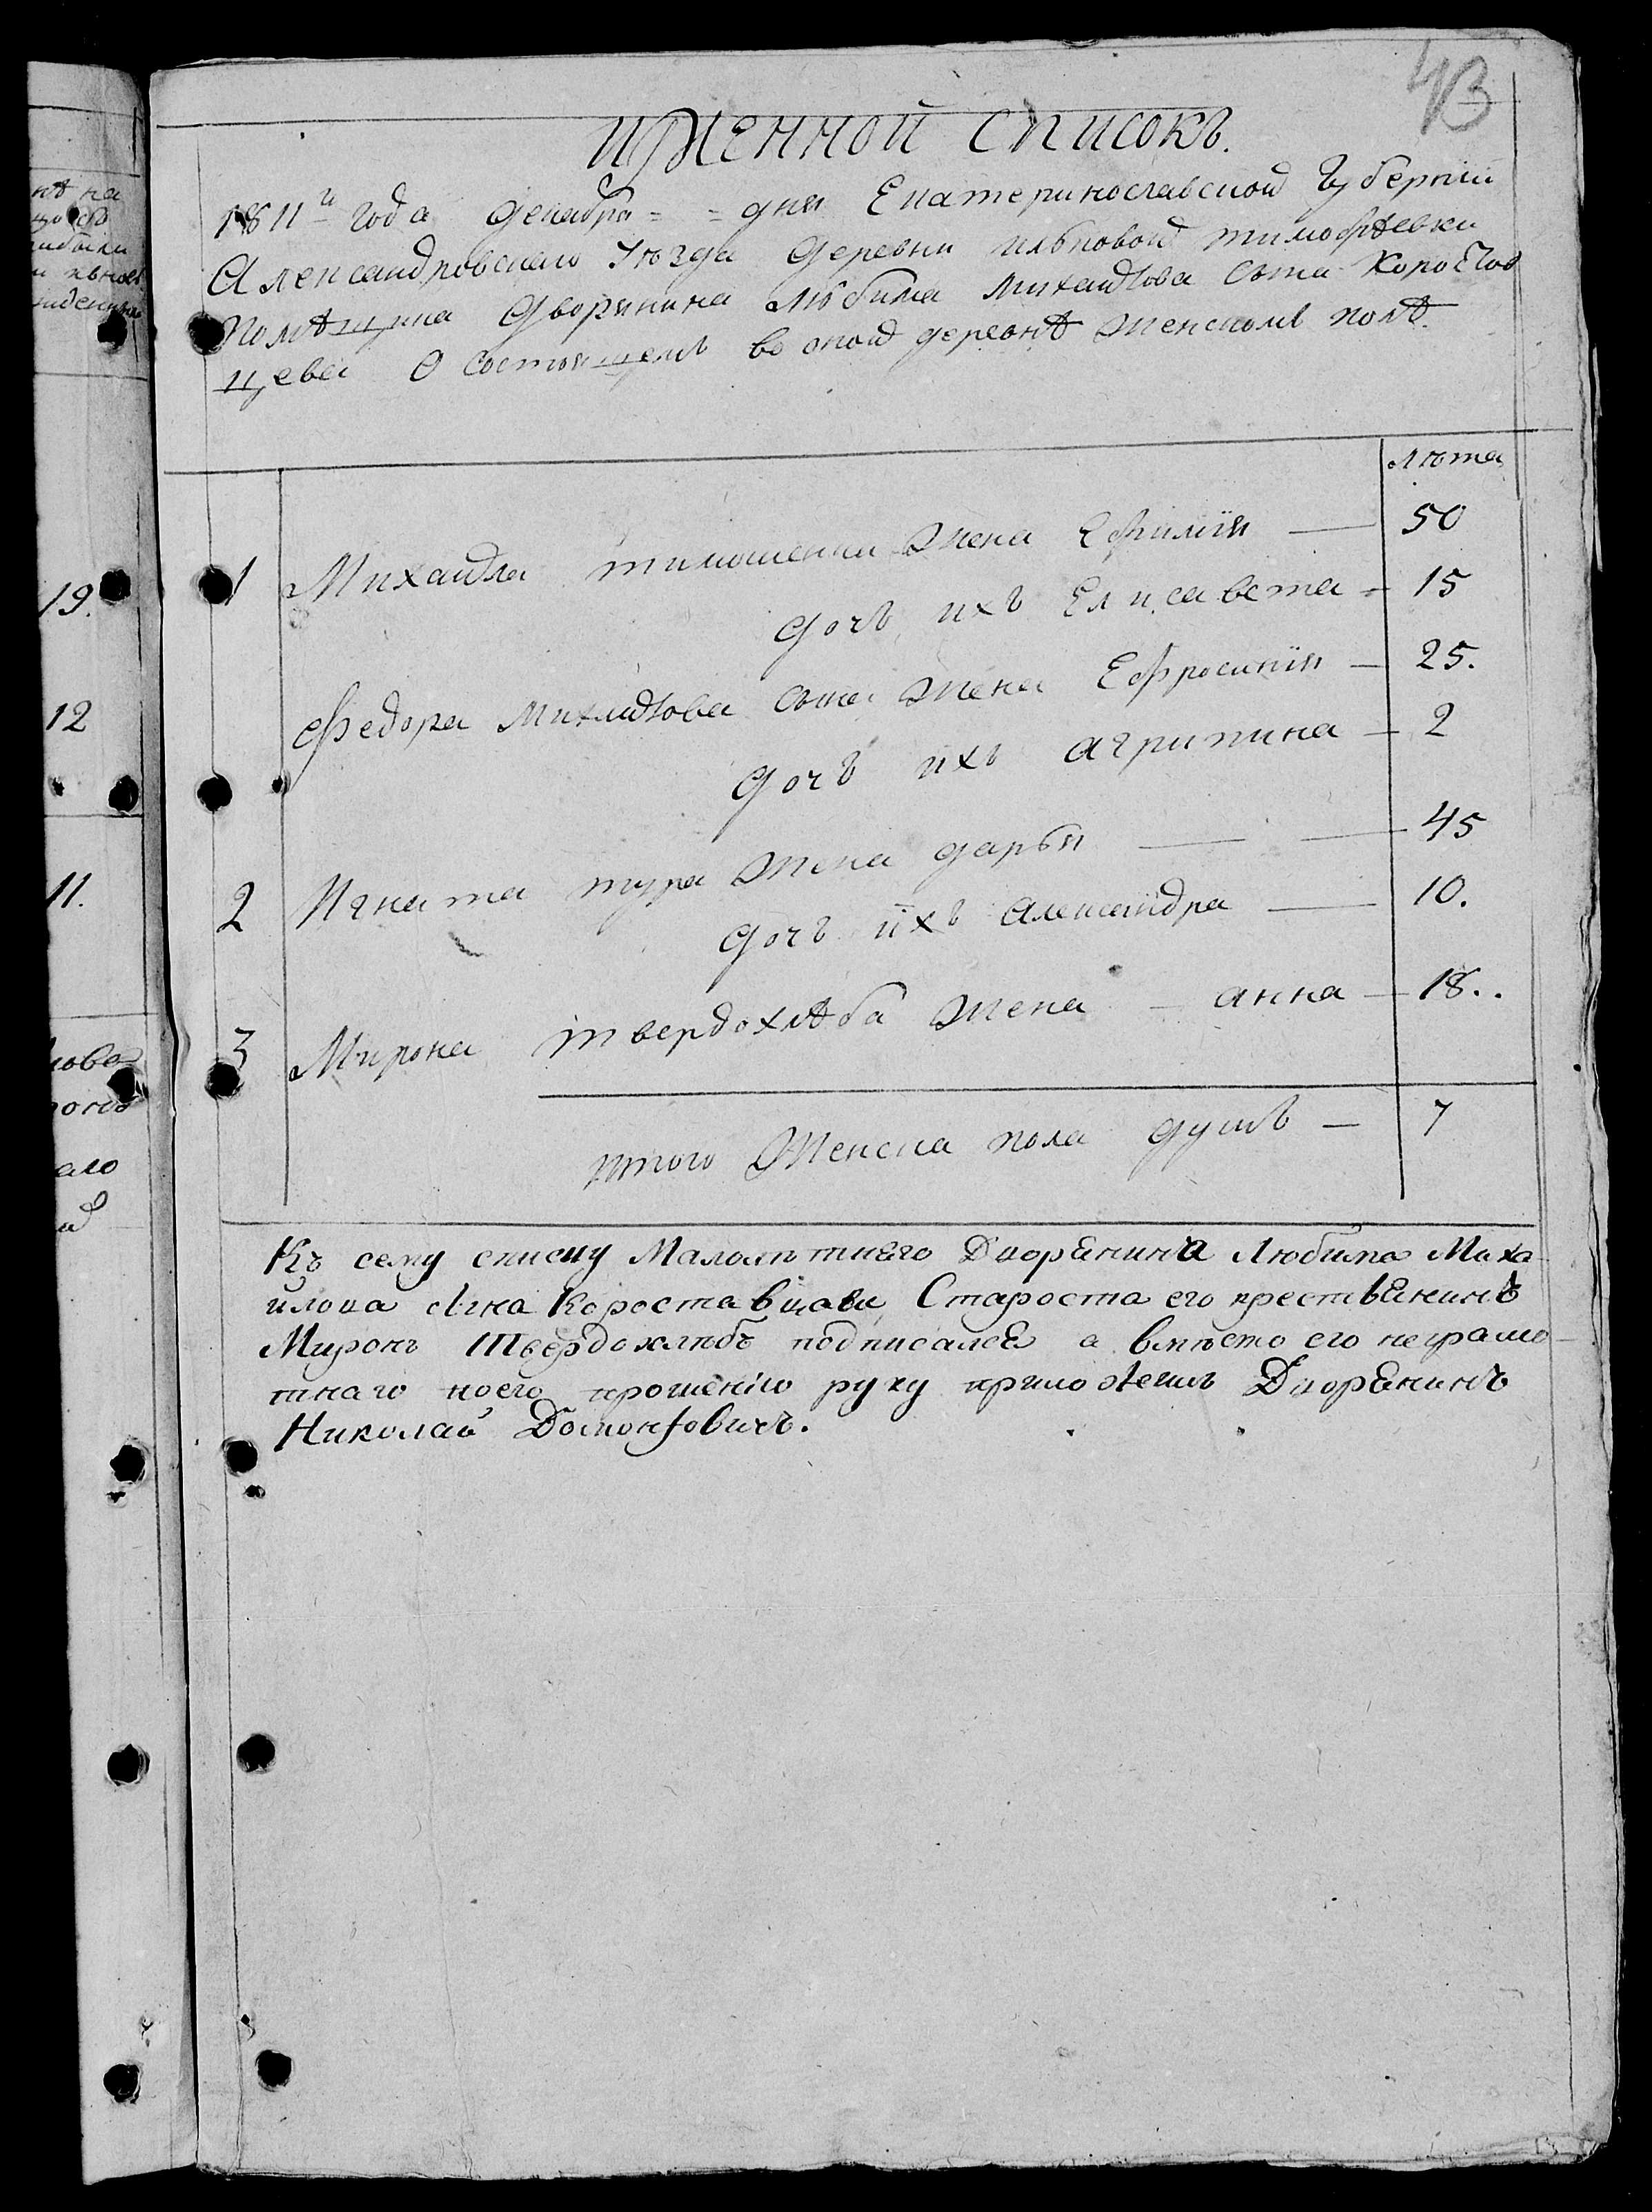 43
Именной списокъ.
1811го года декабря = = дня Екатеринославской губернии
Александровскаго уезда деревни ильковой тимофѣевки
Помѣщика дворянина любима михайлова сына Коростов
щева О состоящемъ во оной деревнѣ женскомъ полѣ.
лѣта
1 Михайла тимошенки жена Ефимїя — 50
дочь ихъ Елисавета - 15
Федора Михайлова сына жена Ефросинїя — 25.
дочь ихъ агрипина — 2
2 Игната тура жена дарья — — 45
дочь ихъ александра — 10.
3 Мирона твердохлѣба жена — анна — 18..
итого женска пола душъ — 7
Къ сему списку Малолѣтнего Дворенина Любима Миха
йлова сына Короставщава Староста его крестьенинъ
Миронъ Твердохлѣбъ подписалсе а вмѣсто его неграмо
тнаго поего прошенїю руку приложилъ Дворенинъ
Николай Домонтовичъ.
19.
12
11.